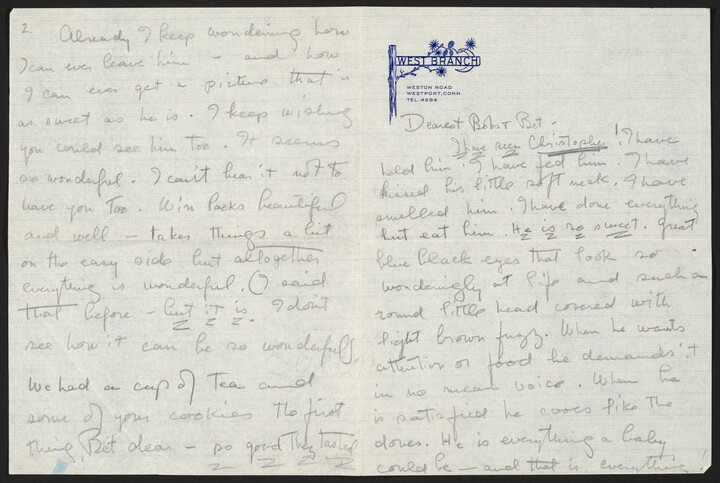 WEST BRANCH
WESTON ROAD
WESTPORT, CONN.
TEL. 4284
Dearest Bob & Bet -
I have seen Christopher! I have
held him! I have fed him! I have
kissed his little soft neck. I have
smelled him. I have done everything
but eat him. He is so sweet. Great
blue black eyes that look so
wonderingly at life and such a
round little head covered with
light brown fuzz. When he wants
attention or food he demands it
in no mean voice. When he
is satisfied he cooes like the
doves. He is everything a baby
could be - and that is everything!
2.
Already I keep wondering how
I can ever leave him - and how
I can ever get a picture that is
as sweet as he is. I keep wishing
you could see him too. It seems
so wonderful. I can't bear it not to
have you too. Win looks beautiful
and well - takes things a bit
on the easy side but altogether
everything is wonderful. O I said
that before - but it is. I don't
see how it can be so wonderful.
We had a cup of tea and
some of your cookies the first
thing, Bet dear - so good they tasted